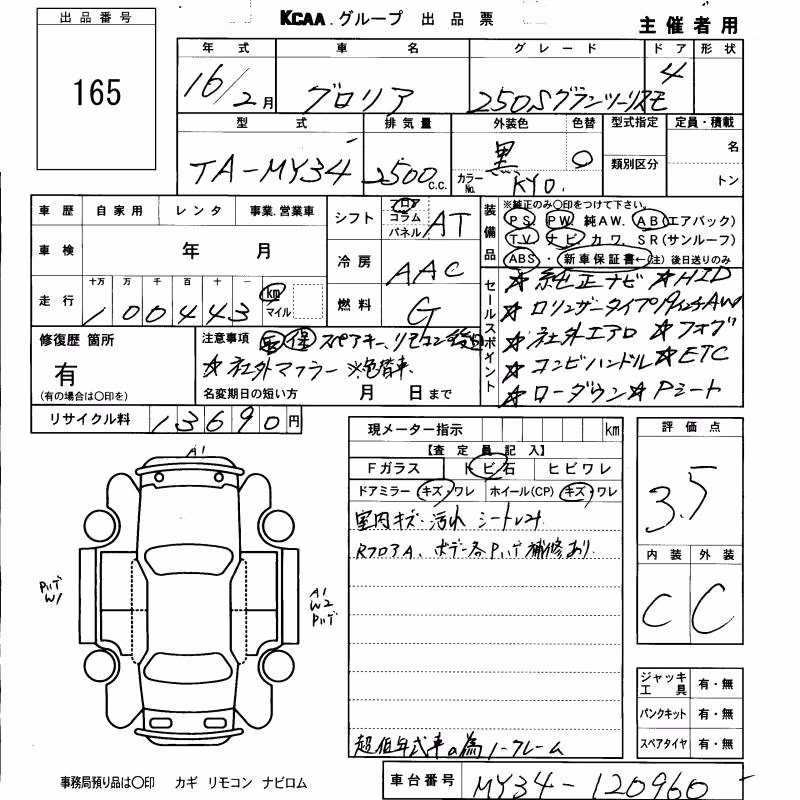 出品番号
KCAA.グループ 出品票
主催者用
165
年式 車名 グレード ドア 形状
16/2月 グロリア 250Sグランツーリスモ 4
型式 排気量 外装色 色替 型式指定 定員・積載
TA-MY34 2500 c.c. 黒 ○ 名
カラーNo. KY0. 類別区分 トン
車歴 自家用 レンタ 事業.営業車
シフト フロア コラム パネル AT
装備品 ※純正のみ○印をつけて下さい。
PS PW 純AW. AB(エアバック)
TV ナビ カワ. SR(サンルーフ)
ABS・新車保証書←(注)後日送りのみ
車検 年 月
冷房 AAC
走行 十万 万 千 百 十 一
100443 km マイル
燃料 G
セールスポイント
☆純正ナビ ☆HID
☆ロリンザータイプ19インチAW
☆社外エアロ ☆フォグ
☆コンビハンドル ☆ETC
☆ローダウン ☆Pシート
修復歴 箇所
有
(有の場合は○印を)
注意事項 保 スペアキー、リモコン後日
☆社外マフラー ※色替車
名変期日の短い方 月 日まで
リサイクル料 13690円
現メーター指示 km
【査定員記入】
Fガラス トビ石 ヒビワレ
ドアミラー キズ・ワレ ホイール(CP) キズ・ワレ
室内キズ・汚れ シート
RフロアA、ボデー各Pハゲ補修あり
超低年式車の為ノークレーム
評価点
3.5
内装 外装
C C
A1
Pハゲ
W1
A1
W2
Pハゲ
ジャッキ工具 有・無
パンクキット 有・無
スペアタイヤ 有・無
事務局預り品は○印 カギ リモコン ナビロム
車台番号 MY34-120960